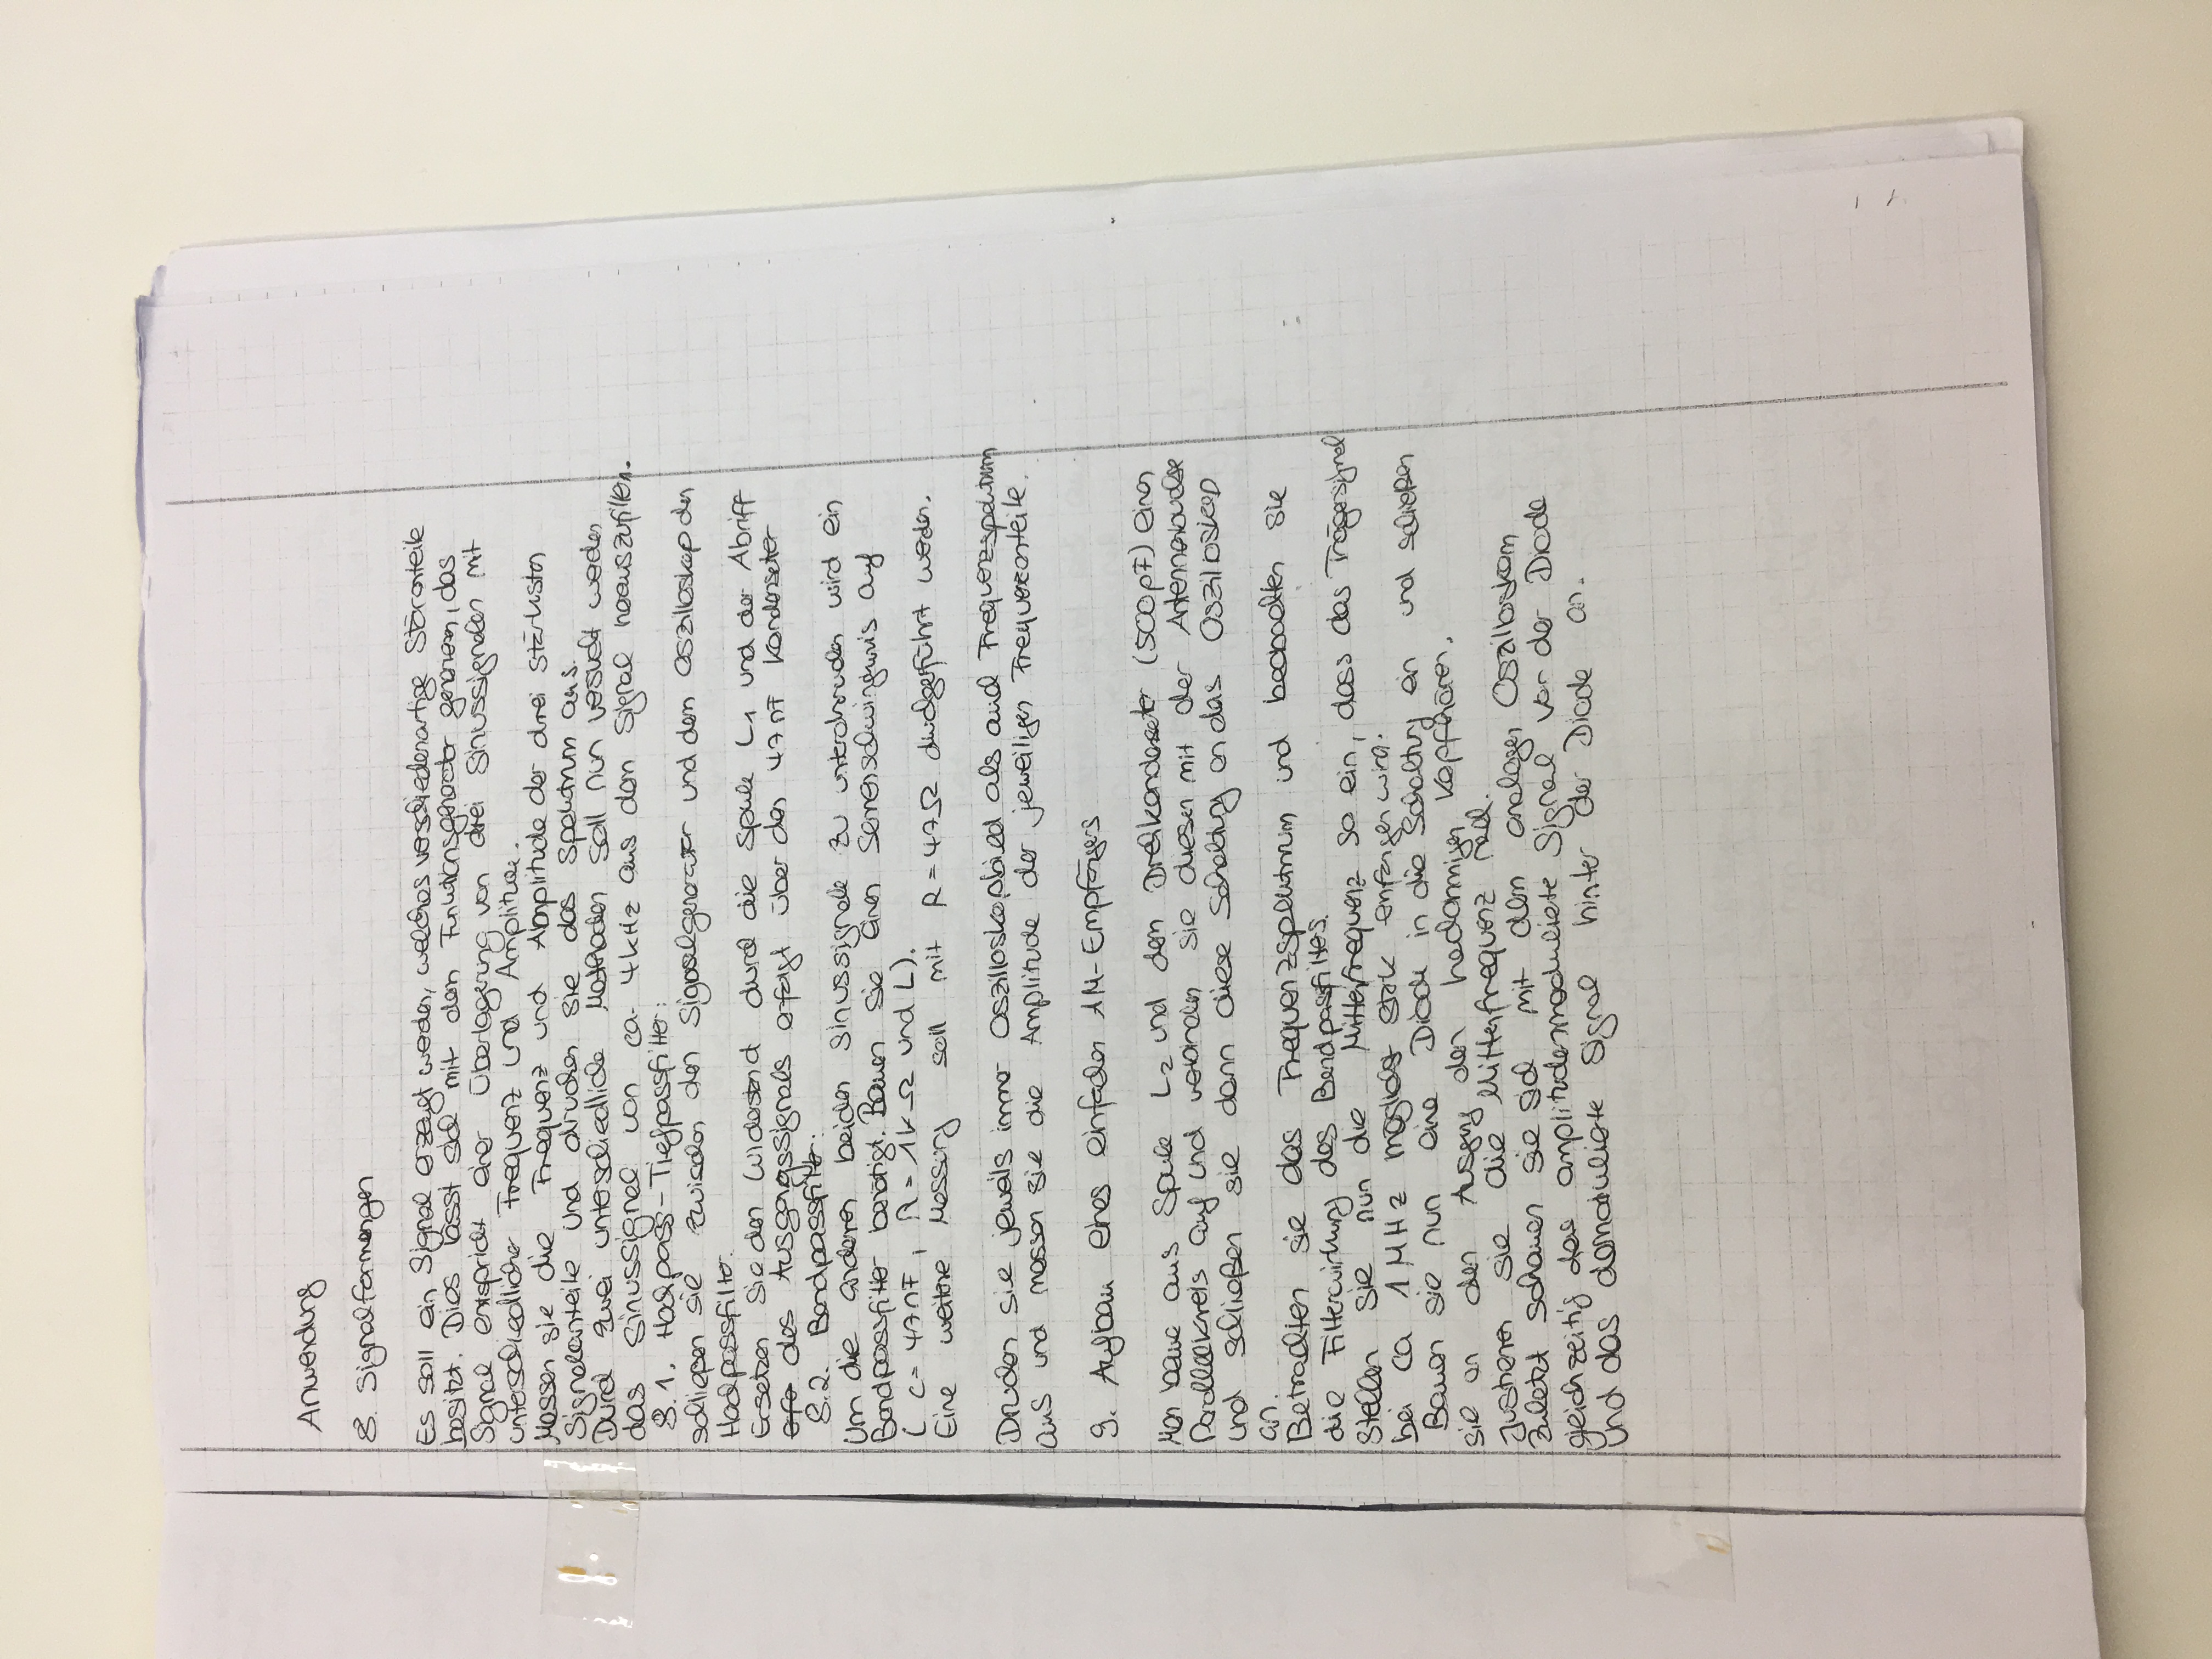 Anwendung
8. Signalformengen
Es soll ein Signal erzeugt werden, welches verschiedenartige Störanteile
besitzt. Dies lässt sich mit dem Funktionsgenerator generieren, das
Signal entspricht einer Überlagerung von drei Sinussignalen mit
unterschiedlicher Frequenz und Amplitude.
Messen sie die Frequenz und Amplitude der drei stärksten
Signalanteile und drucken sie das Spektrum aus.
Durch zwei unterschiedliche Methoden soll nun versucht werden
das Sinussignal von ca. 4kHz aus dem Signal herauszufiltern.
8.1. Hochpass-Tiefpassfilter:
schließen sie zwischen den Signalgenerator und dem Oszilloskop den
Hochpassfilter.
Ersetzen Sie den Widerstand durch die Spule L1 und der Abriff
des Ausgangssignals erfolgt über den 47nF Kondensator
8.2. Bandpassfilter:
Um die anderen beiden Sinussignale zu unterdrücken wird ein
Bandpassfilter benötigt. Bauen sie einen auf
( C=47nF, R=1kΩ und L).
Eine weitere Messung soll mit R=47Ω durchgeführt werden.
Drucken sie jeweils immer Oszilloskopbild als auch Frequenzspektrum
aus und messen sie die Amplitude der jeweiligen Frequenzanteile.
9. Aufbau eines einfachen AM-Empfängers
Man baue aus Spule L2 und dem Drehkondensator (500pF) einen
Parallelkreis auf und verbinden sie diesen mit der Antennenbuchse
und schließen sie dann diese Schaltung an das Oszilloskop
an.
Betrachten sie das Frequenzspektrum und beobachten sie
die Filterwirkung des Bandpassfilters.
Stellen sie nun die Mittenfrequenz so ein, dass das Trägersignal
bei ca 1MHz möglichst stark empfangen wird.
Bauen sie nun eine Diode in die Schaltung ein und schließen
sie an den Ausgang den hochohmigen Kopfhörer.
Justieren sie die Mittenfrequenz nach.
Zuletzt schauen sie sich mit dem analogen Oszilloskop
gleichzeitig das amplitudenmodulierte Signal vor der Diode
und das demodulierte Signal hinter der Diode an.